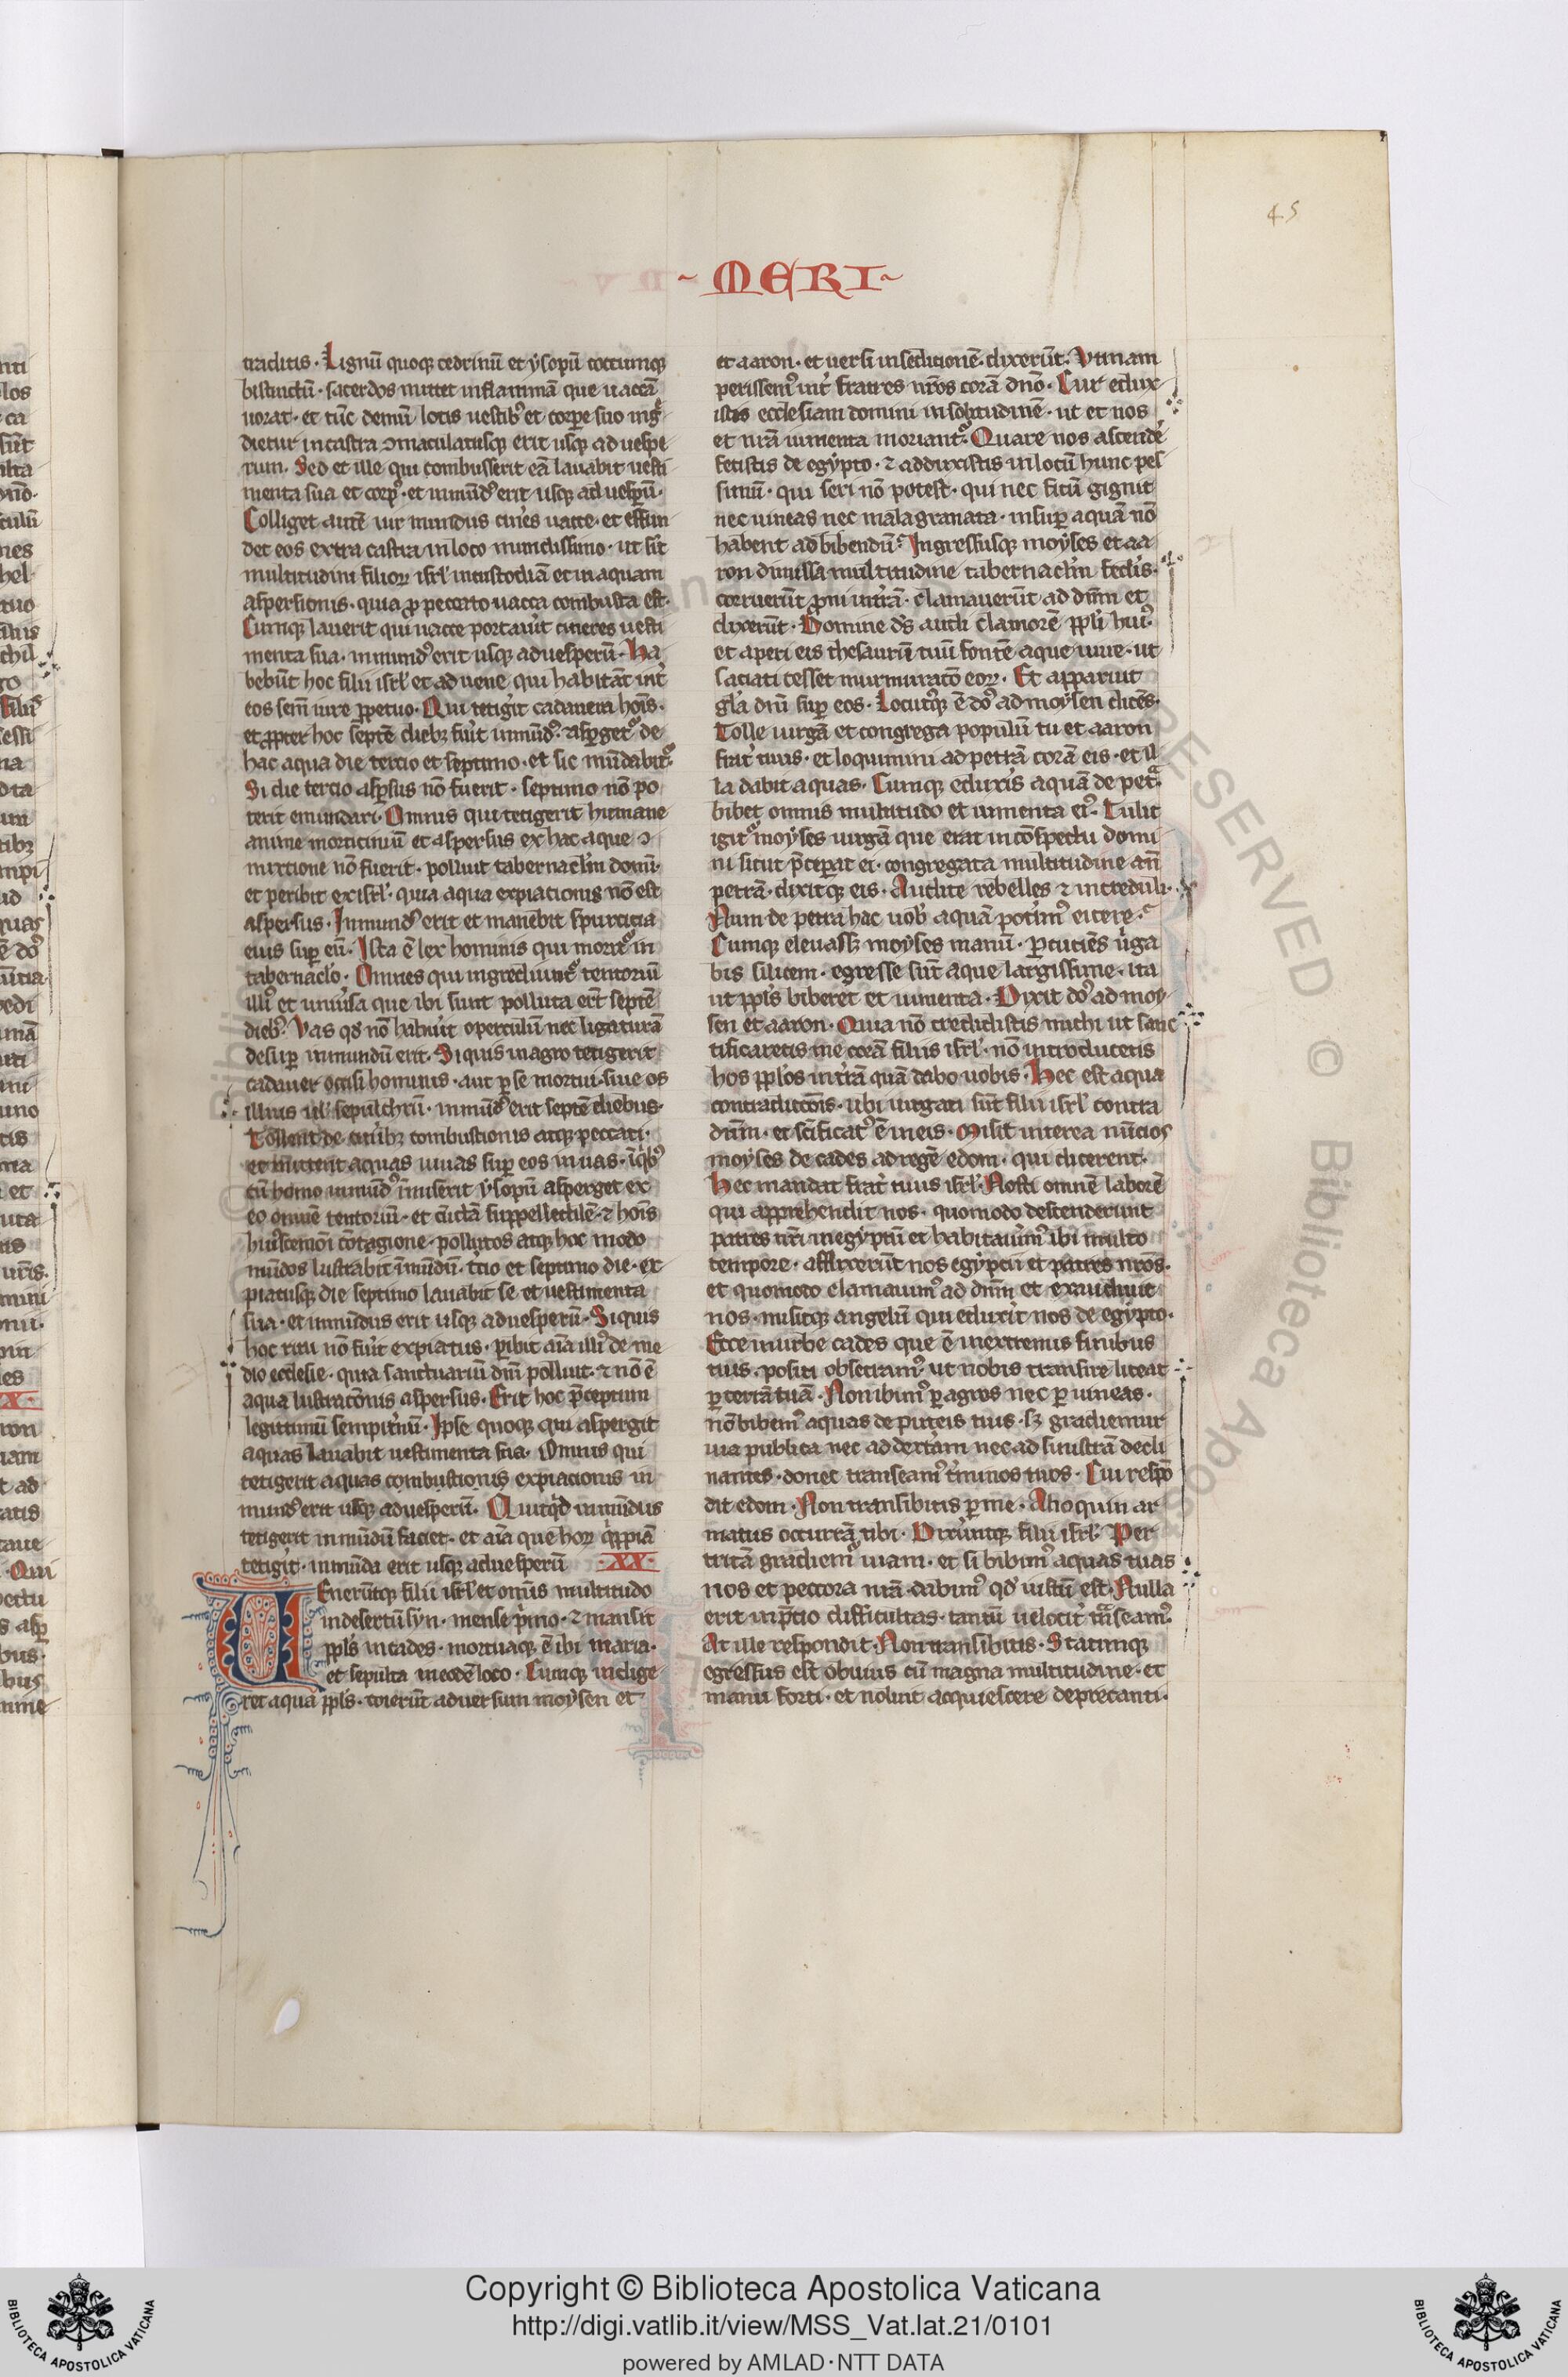 45
~ MERI ~
traditis· Lignū quoq; cedrinū et ysopū coccumq;
bistinctū· sacerdos mittet in flammā que uaccā
uorat· et tūc demū lotis uestibꝰ et corpe suo ingͬ
dietur in castra ɔmaculatusq; erit usq; ad uespe
rum. Sed et ille qui combusserit eā lauabit uesti
menta sua et corpꝰ· et inmūdꝰ erit usq; ad uesperū·
Colliget autē uir mundus cin̄es uacce· et effun
det eos extra castra in loco mundissimo· ut sīt
multitudini filioꝝ isrl̓ in custodiā et in aquam
aspersionis· quia ꝓ peccato uacca combusta est·
Cumq; lauerit qui uacce portau̓it cineres uesti
menta sua· inmundꝰ erit usq; ad uesperū· Ha
bebūt hoc filii isrl̓ et aduene qui habitāt int̓
eos sēm iure ꝑpetuo· Qui tetigit̓ cadauera hoīs·
et ꝓpter hoc septē diebꝫ fu̓it inmūdꝰ· aspergetͬ de
hac aqua die tercio et septimo· et sic mūdabitͬ·
Si die tercio aspersus nō fuerit· septimo nō po
terit emundari· Omnis qui tetigerit humane
anime morticinū et aspersus ex hac aque ɔ
mixtione nō fuerit· polluit tabernacl̓m domī·
et peribit ex isrl̓· quia aqua expiationis nō est
aspersus· Inmundꝰ erit et manebit spurcitia
eius suꝑ eū· Ista ē lex hominis qui moritͬ in
tabernaclo· Omnes qui ingrediuntͬ tentoriū
illiꝰ et uniu̓sa que ibi sunt polluta erūt septē
diebꝰ· Vas qd̓ nō habu̓it operculū nec ligaturā
desuꝑ inmundū erit· Si quis in agro tetigerit
cadauer occisi hominis· aut ꝑ se mortui· siue os
illius ul̓ sepulchrū· inmūdꝰ erit septē diebus·
Tollent de cinībꝫ combustionis atq; peccati·
et mittent aquas uiuas suꝑ eos in uas· ī qͥbꝰ
cū homo mundꝰ īmiserit ysopū asperget ex
eo omnē tentoriū· et cūctā suppellectilē· ⁊ hoīs
huiꝰcemōi cōtagione pollutos atq; hoc modo
mūdos lustrabit īmūdū· t̓cio et septimo die· ex
piatusq; die septimo lauabit se et uestimenta
sua· et inmūdus erit usq; ad uesperū· Si quis
hoc ritu nō fu̓it expiatus· ꝑibit aīa illiꝰ de me
dio ecclesie· quia sanctuariū dn̄i polluit· ⁊ nō ē
aqua lustracōnis aspersus· Erit hoc p̄ceptum
legitimū sempit̓nū· Ipse quoq; qui aspergit
aquas lauabit uestimenta sua· Omnis qui
tetigerit aquas combustionis expiacionis in
mundꝰ erit usq; ad uesperū· Quitqͥd inmūdus
tetigerit inmūdū faciet· et aīa que hoꝝ qͥppiā
tetigit̓· inmūda erit usq; ad uesperū ·XX·
UEnerūtq; filii isrl̓ et omīs multitudo
in desertū syn· mense pͥmo· ⁊ mansit
ppl̓s in cades· mortuaq; ē ibi maria·
et sepulta in eodē loco· Cumq; indige
ret aqua ppl̓s· coierūt aduersum moysen et
et aaron· et uersi in sedicionē· dixerūt· Vtinam
perissemꝰ int̓ fratres nr̄os corā dn̄o· Cur edux
istis ecclesiam domini in solitudinē· ut et nos
et nr̄a iumenta moriantͬ· Quare nos ascende͛
fecistis de egypto· ⁊ adduxistis in locū hunc pes
simū· qui seri nō potest· qui nec ficū gignit
nec uineas nec mala granata· insuꝑ aquā nō
habent ad bibendū· Ingressusq; moyses et aa
ron dimissa multitudine tabernacl̓m fed̓is·
corruerūt ꝓni in t̓rā· clamauerūt ad dn̄m et
dixerūt· Domine dꝰs audi clamorē ppl̓i huiꝰ
et aperi eis thesaurū tuū fontē aque uiue· ut
saciati cesset murmuratō eoꝝ· Et apparuit
gl̓a dn̄i suꝑ eos· Locutꝰq; ē dꝰs ad moysen dicēs·
Tolle uirgā et congrega populum tu et aaron
frat̓ tuus· et loquimini ad petrā corā eis· et il
la dabit aquas· Cumq; eduxis̓ aquā de petͣ
bibet omnis multitudo et iumenta eiꝰ· Tulit
igitͬ moyses uirgā que erat in cōspectu domi
ni sicut p̄ceperat ei· congregata multitudine an̄
petrā· dixitq; eis· Audite rebelles ⁊ increduli·
Num de petra hac uob̓ aquā pot̓imꝰ eicere·
Cumq; eleuassꝫ moyses manū· ꝑcuciēs u̓ga
bis silicem· egresse sūt aque largissime· ita
ut ppl̓s biberet et iumenta· Dixit dꝰs ad moy
sen et aaron· Quia nō credidistis michi ut sanc
tificaretis me corā filiis isrl̓· nō introducetis
hos ppl̓os in t̓rā quā dabo uobis· Hec est aqua
contradiccōis· ubi iurgati sūt filii isrl̓ contra
dn̄m· et sc̄ificatꝰ ē in eis· Misit interea nūcios
moyses de cades ad regē edom· qui dicerent·
Hec mandat frat̓ tuus isrl̓· Nosti omnē laborē
qui apprehendit nos· quomodo descenderunt
patres nr̄i in egyptū et habitauim̓ꝰ ibi multo
tempore· afflixerūt nos egyptii et patres nr̄os·
et quomodo clamauimꝰ ad dn̄m et exaudiuit
nos· misitq; angelū qui eduxit̓ nos de egypto·
Ecce in urbe cades que ē in extremis finibus
tuis· positi obsecramꝰ ut nobis transire liceat
ꝑ terrā tuā· Non ibimꝰ ꝑ agros nec ꝑ uineas·
nō bibemꝰ aquas de puteis tuis· sꝫ gradiemur
uia publica nec ad dext̓am nec ad sinistrā decli
nantes· donec transeamꝰ t̓minos tuos· Cui respō
dit edom· Non transibitis ꝑ me· Alioquin ar
matus occurrā tibi· Dixer̓untq; filii isrl̓· Per
tritā gradiemͬ uiam· et si bibimꝰ aquas tuas
nos et peccora nr̄a· dabimꝰ qd̓ iustū est· Nulla
erit in p̄cio difficultas· tantū uelocit̓ tͣnseamꝰ·
At ille respondit· Non transibitis· Statimq;
egressus est obuius cū magna multitudine· et
manu forti· et noluit acquiescere deprecanti·
Copyright © Biblioteca Apostolica Vaticana
http://digi.vatlib.it/view/MSS_Vat.lat.21/0101
powered by AMLAD·NTT DATA
BIBLIOTECA APOSTOLICA VATICANA
BIBLIOTECA APOSTOLICA VATICANA